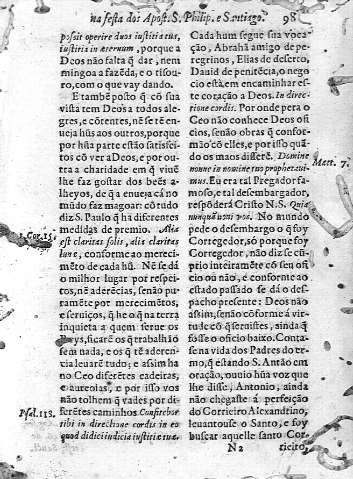 na festa dos Apost. S. Philip. e Santiago. 98
possit operire duos iustitia tua,
iustitia in æternum, porque a
Deos não falta q̃ dar, nem
mingoa a fazẽda, e o tisou-
ro, com o que vay dando.
E tambẽ posto q̃ cõ sua
vista tem Deos a todos ale-
gres, e cõtentes, nẽ se tẽ en-
ueja hũs aos outros, porque
por hũa parte estão satisfei-
tos cõ ver a Deos, e por ou-
tra a charidade em q̃ viuẽ
lhe faz gostar dos beẽs a-
lheyos, de q̃ a enueja cá no
mũdo faz magoar: cõ tudo
diz S. Paulo q̃ ha diferentes
medidas de premio. Alia
1. Cor. 15.
est claritas solis, alia claritas
lunæ, conforme ao mereci-
mẽto de cada hũ. Nẽ se dá
o milhor lugar por respei-
tos, nẽ aderẽcias, senão pu-
ramẽte por merecimẽtos,
e seruiços, q̃ he o q̃ na terra
inquieta a quem serue os
Reys, ficarẽ os q̃ trabalhão
sem nada, e os q̃ tẽ aderen-
cia leuarẽ tudo, e assim ha
no Ceo diferentes cadeiras,
e aureolas, e por isso vos
não tolhem q̃ vades por di-
Psal. 118.
ferẽtes caminhos Confitebor
tibi in directione cordis in eo
quod didici iudicia iustitiæ tuæ.
Cada hum segue sua voca-
ção, Abrahã amigo de pe-
regrinos, Elias de deserto,
Dauid de penitẽcia, o nego
cio está em encaminhar es-
te coração a Deos. In dire-
ctione cordis. Por onde pera o
Ceo não conhece Deos ofi
cios, senão obras q̃ confor-
mão cõ elles, e por isso quã-
do os maos disserẽ. Domine
Matt. 7.
nonne in nomine tuo prophetaui-
mus. Eu era tal Pregador fa-
moso, e tal desembargador,
respõderá Christo N. S. Quia
nunquã noui vos. No mundo
pede o desembargo o q̃ foy
Corregedor, só porque foy
Corregedor, não diz se cũ-
prio inteiramẽte cõ seu ofi
cio ou não, e conforme ao
estado passado se dá o des-
pacho presente: Deos não
assim, senão cõforme á vir-
tude cõ q̃ seruistes, ainda q̃
fosse o oficio baixo. Conta-
se na vida dos Padres do ter-
mo, q̃ estando S. Antão em
oração, ouuio hũa voz que
lhe disse, Antonio, ainda
não chegaste á perfeição
do Corrieiro Alexandrino,
leuantouse o Santo, e foy
buscar aquelle santo Cor-
N 2 rieiro,